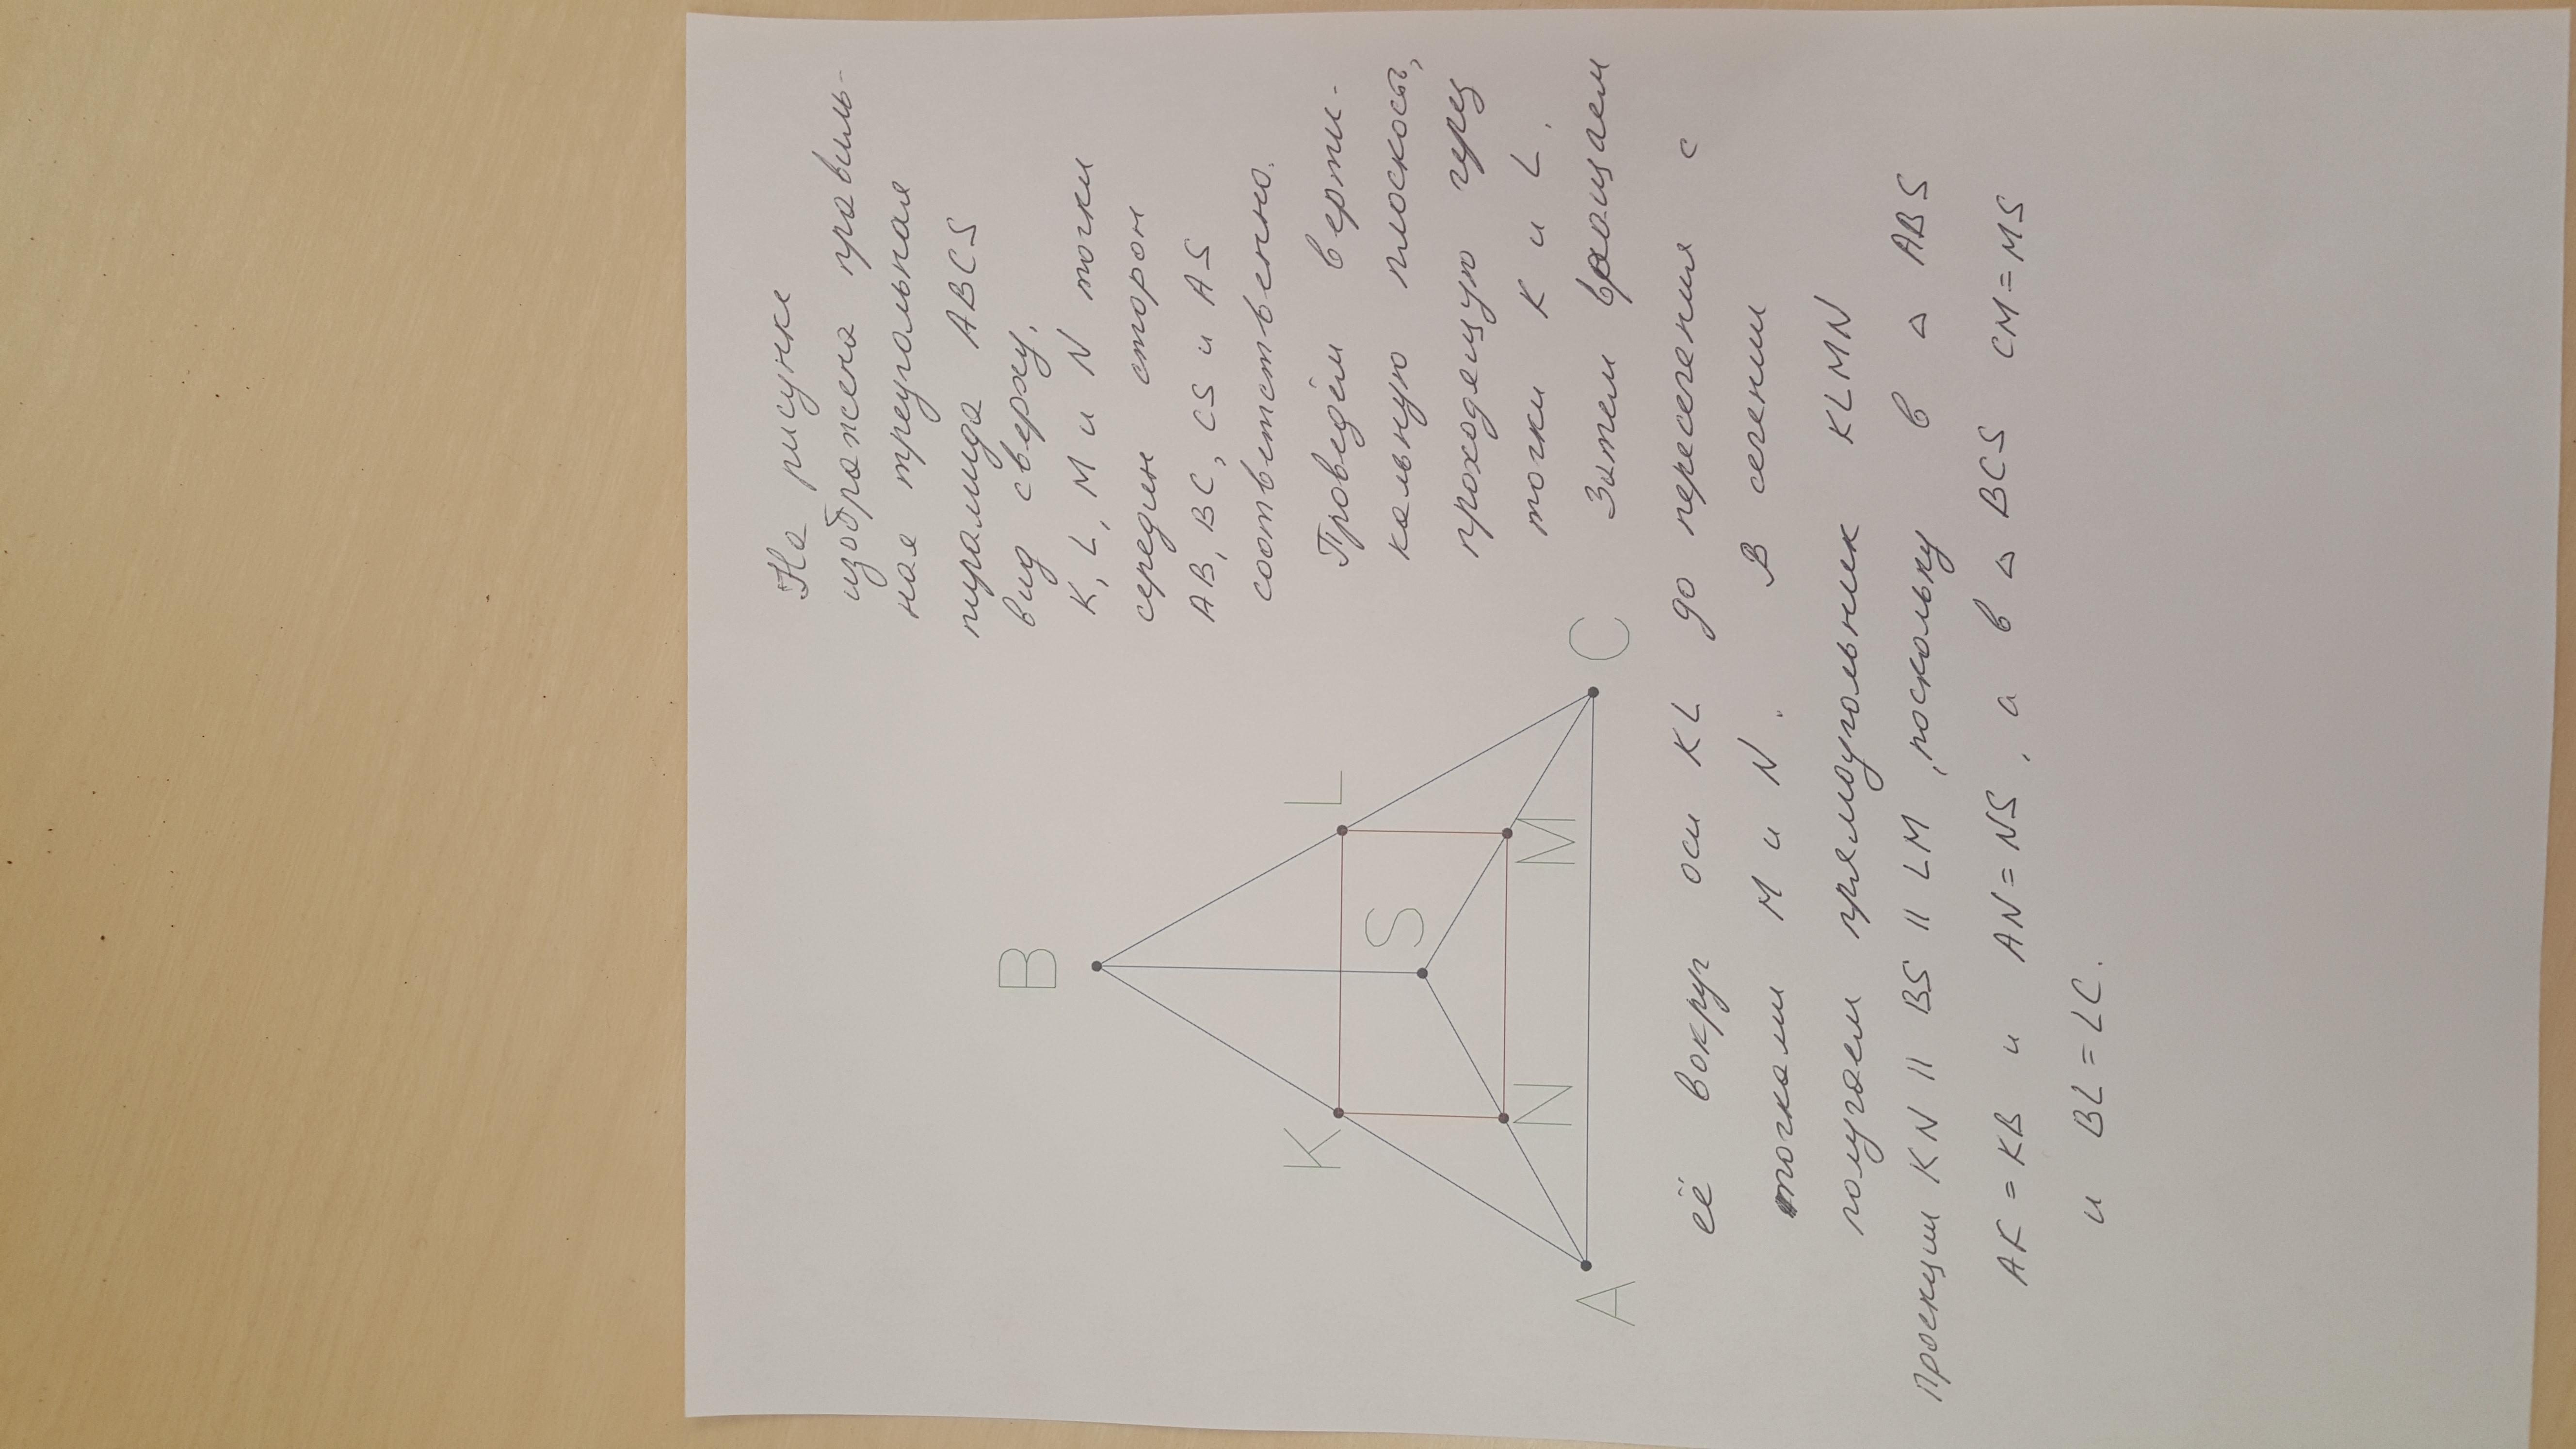 На рисунке
изображена правиль-
ная треугольная
пирамида ABCS
вид сверху.
K, L, M и N точки
середин сторон
AB, BC, CS и AS
соответственно.
Проведём верти-
кальную плоскость,
проходящую
точки K и L.
Затем вращаем
её вокруг оси KL до пересечения с
точками M и N. В сечении
получаем прямоугольник KLMN
Проекции KN || BS || LM, поскольку в △ ABS
AK = KB и AN = NS, а в △ BCS CM = MS
и BL = LC.
B
K
L
S
N
M
A
C